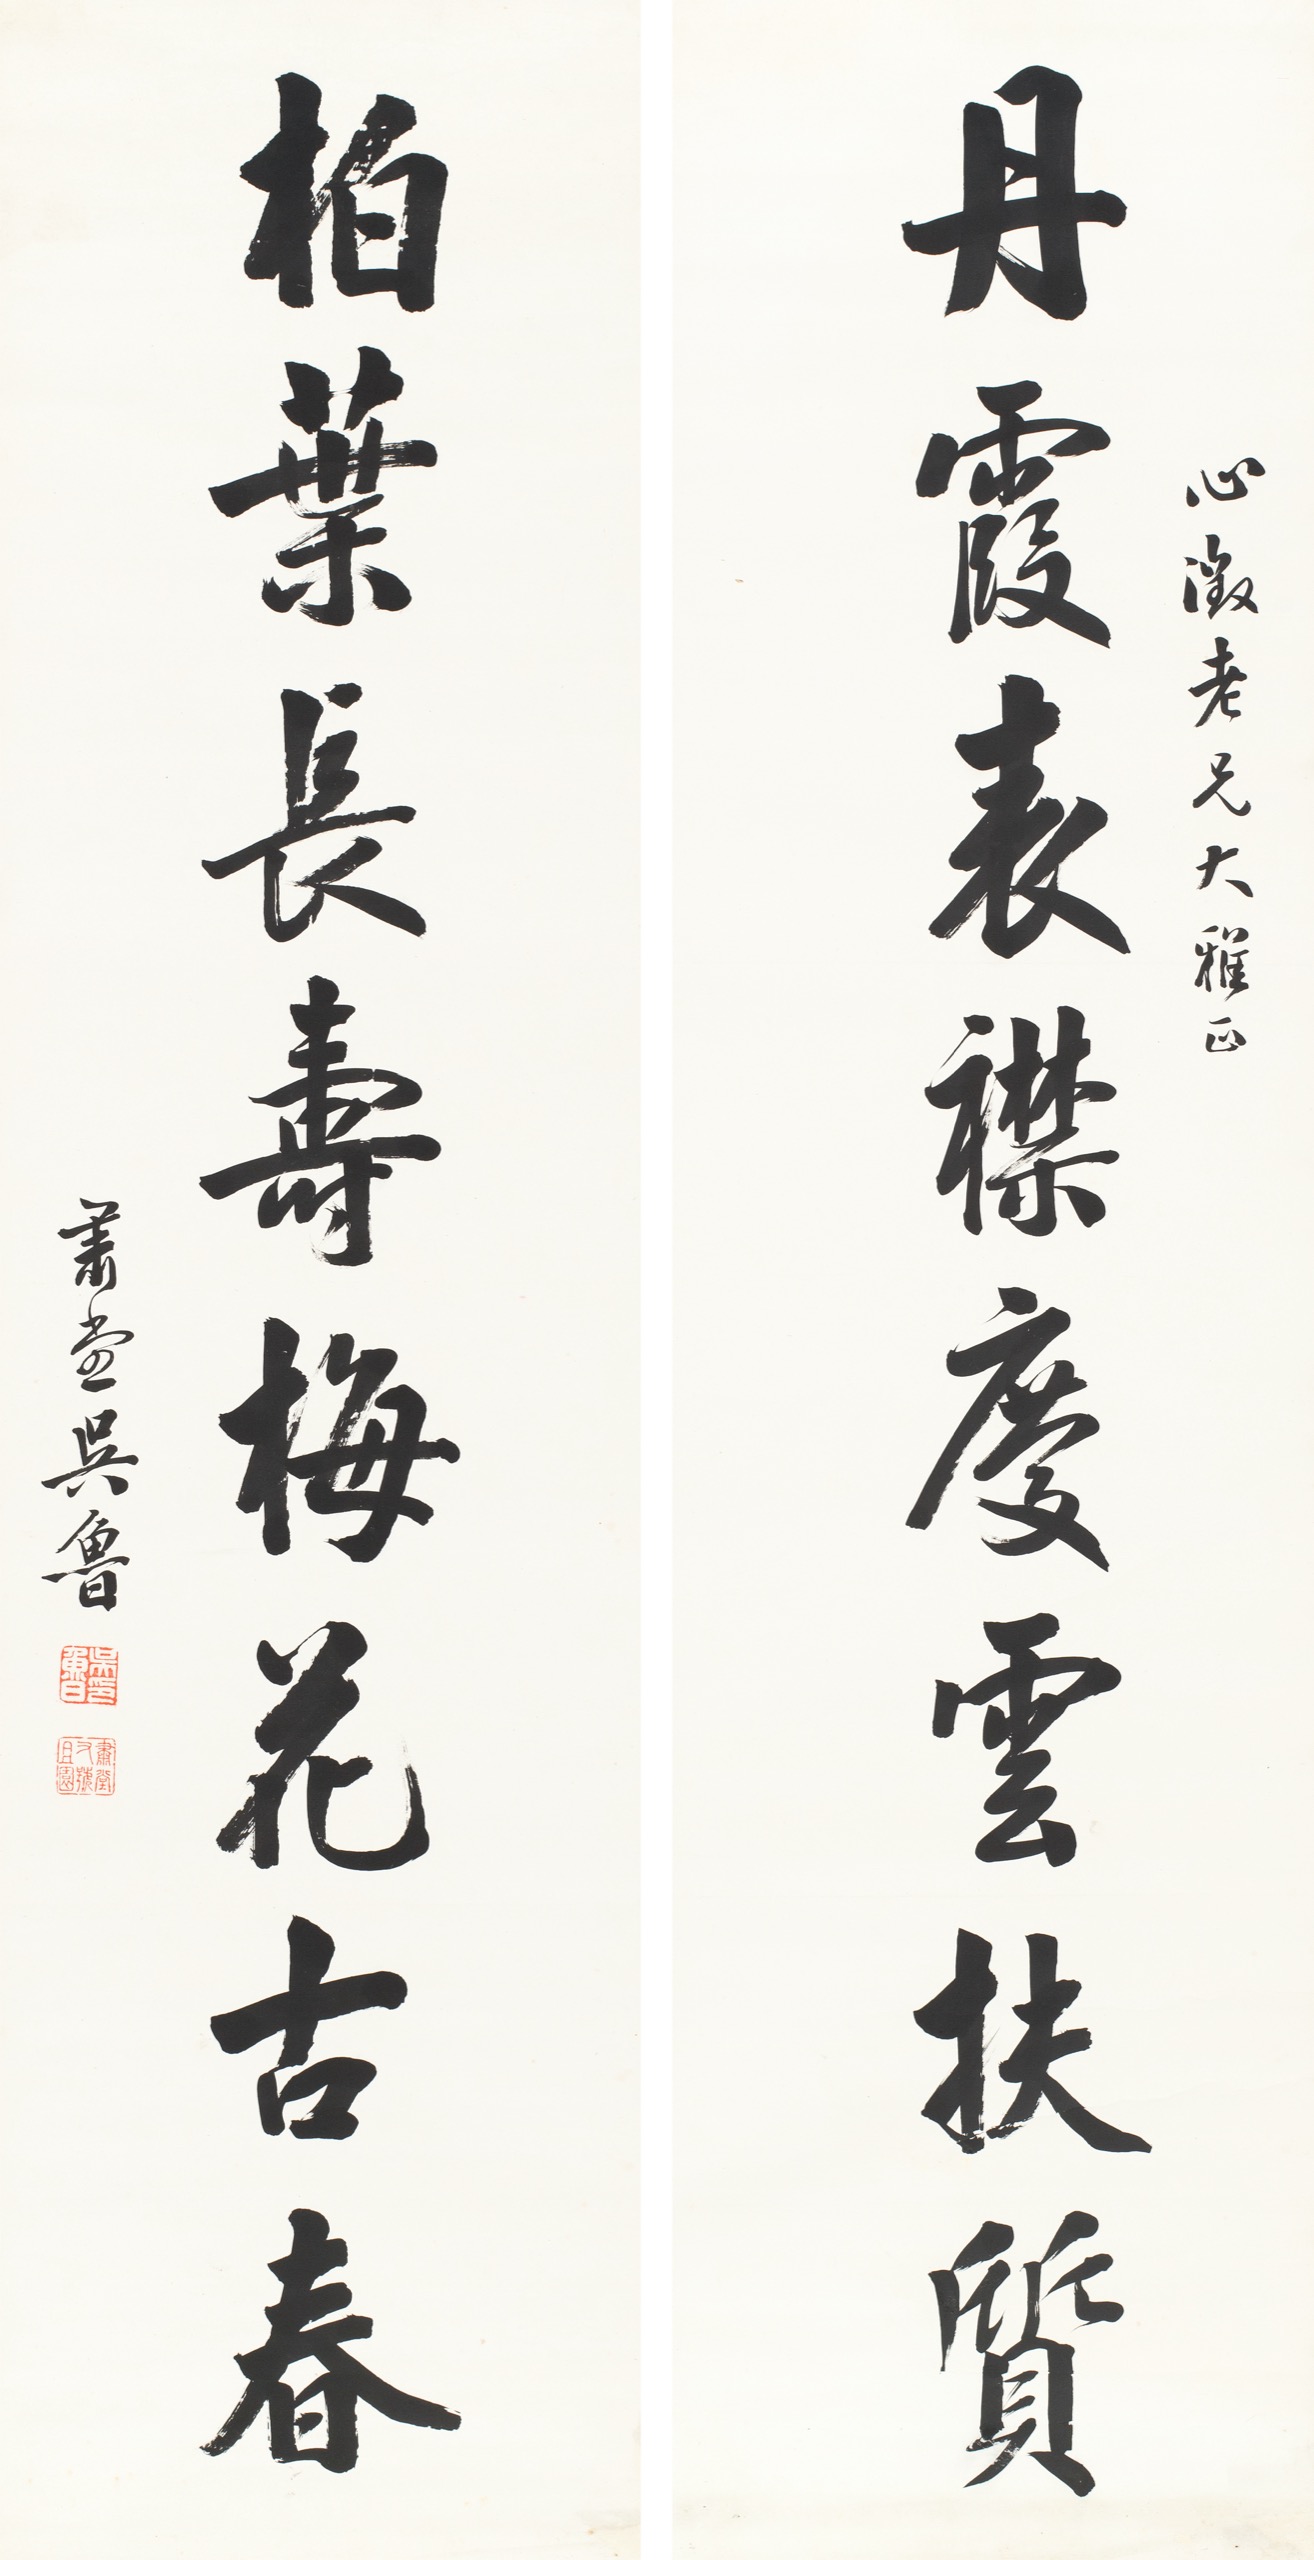 心澂老兄大雅正
丹霞表襟慶雲扶質
柏葉長壽梅花古春
肅堂吳魯
吳印魯
肅堂又號且園